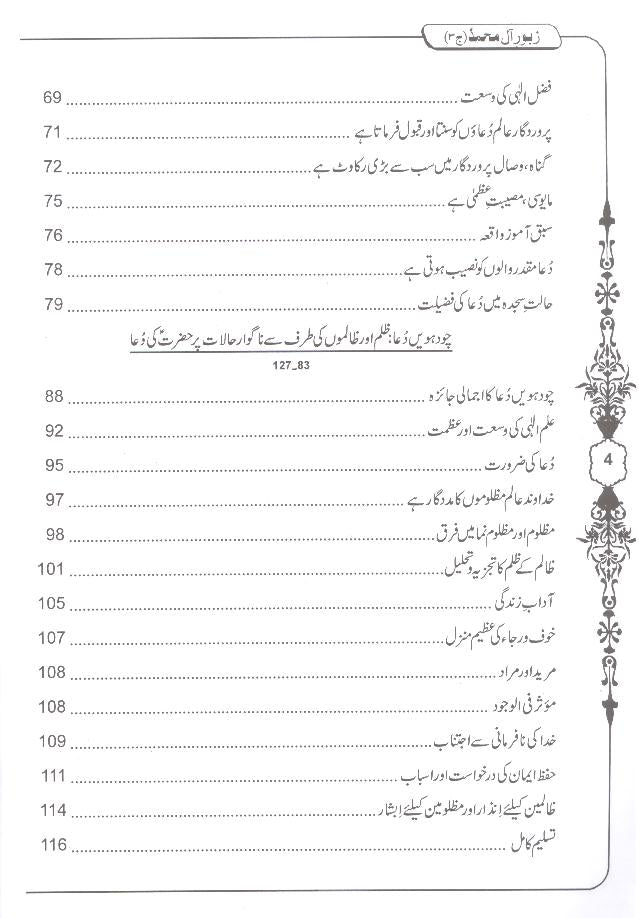 زبور آل محمدؐ (ج ۳)
فضل الہٰی کی وسعت ........ 69
پروردگار عالم دُعاؤں کو سنتا اور قبول فرماتا ہے ........ 71
گناہ، وصال پروردگار میں سب سے بڑی رکاوٹ ہے ........ 72
مایوسی، مصیبتِ عظمیٰ ہے ........ 75
سبق آموز واقعہ ........ 76
دُعا مقدر والوں کو نصیب ہوتی ہے ........ 78
حالتِ سجدہ میں دُعا کی فضیلت ........ 79
چودہویں دُعا: ظلم اور ظالموں کی طرف سے ناگوار حالات پر حضرتؑ کی دُعا
127_83
چودہویں دُعا کا اجمالی جائزہ ........ 88
علم الہٰی کی وسعت اور عظمت ........ 92
دُعا کی ضرورت ........ 95
خداوند عالم مظلوموں کا مددگار ہے ........ 97
مظلوم اور مظلوم نما میں فرق ........ 98
ظالم کے ظلم کا تجزیہ و تحلیل ........ 101
آدابِ زندگی ........ 105
خوف و رجاء کی عظیم منزل ........ 107
مرید اور مراد ........ 108
مؤثر فی الوجود ........ 108
خدا کی نافرمانی سے اجتناب ........ 109
حفظ ایمان کی درخواست اور اسباب ........ 111
ظالمین کیلئے اِنذار اور مظلومین کیلئے اِبشار ........ 114
تسلیم کامل ........ 116
4